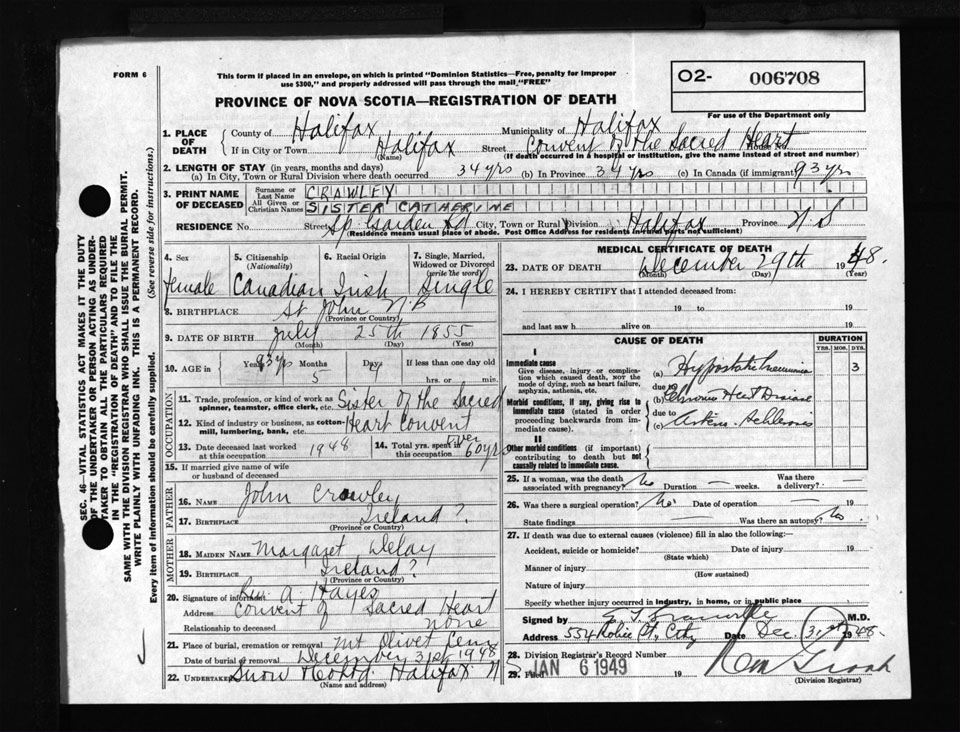 FORM 6
This form if placed in an envelope, on which is printed "Dominion Statistics—Free, penalty for improper
use $300," and properly addressed will pass through the mail "FREE"
O2- 006708
PROVINCE OF NOVA SCOTIA—REGISTRATION OF DEATH
For use of the Department only
1. PLACE OF DEATH
County of Halifax Municipality of Halifax
If in City or Town Halifax Street Convent of the Sacred Heart
(Name) (If death occurred in a hospital or institution, give the name instead of street and number)
2. LENGTH OF STAY (in years, months and days)
(a) In City, Town or Rural Division where death occurred 34 yrs (b) In Province 34 yrs (c) In Canada (if immigrant) 93 yrs
3. PRINT NAME OF DECEASED
Surname or Last Name CRAWLEY
All Given or Christian Names SISTER CATHERINE
RESIDENCE No. Street Sp. Garden Rd City, Town or Rural Division Halifax Province N.S
(Residence means usual place of abode. Post Office Address for residents in rural parts not sufficient)
4. Sex female
5. Citizenship (Nationality) Canadian
6. Racial Origin Irish
7. Single, Married, Widowed or Divorced (write the word) Single
8. BIRTHPLACE St John N.B
(Province or Country)
9. DATE OF BIRTH July 25th 1855
(Month) (Day) (Year)
10. AGE in Years 93 yrs Months 5 Days If less than one day old
hrs. or min.
OCCUPATION
11. Trade, profession, or kind of work as spinner, teamster, office clerk, etc. Sister of the Sacred
12. Kind of industry or business, as cotton-mill, lumbering, bank, etc. Heart Convent
13. Date deceased last worked at this occupation 1948
14. Total yrs. spent in this occupation over 60 yrs
15. If married give name of wife or husband of deceased
FATHER
16. NAME John Crowley
17. BIRTHPLACE Ireland?
(Province or Country)
MOTHER
18. MAIDEN NAME Margaret Delay
19. BIRTHPLACE Ireland?
(Province or Country)
20. Signature of informant A. Hayes
Address Convent of Sacred Heart
Relationship to deceased none
21. Place of burial, cremation or removal Mt Olivet Cem
Date of burial or removal December 31st 1948
22. UNDERTAKER Snow Halifax N
(Name and address)
MEDICAL CERTIFICATE OF DEATH
23. DATE OF DEATH December 29th 1948.
(Month) (Day) (Year)
24. I HEREBY CERTIFY that I attended deceased from:
19 to 19
and last saw h alive on 19
CAUSE OF DEATH
DURATION
YRS. MOS. DYS.
I
Immediate cause
Give disease, injury or complication which caused death, not the mode of dying, such as heart failure, asphyxia, asthenia, etc.
(a) Hypostatic Pneumonia 3
due to
Morbid conditions, if any, giving rise to immediate cause (stated in order proceeding backwards from immediate cause).
(b) Chronic Heart Disease
due to
(c) Arterio Sclerosis
II
Other morbid conditions (if important) contributing to death but not causally related to immediate cause.
25. If a woman, was the death associated with pregnancy? No Duration — weeks. Was there a delivery? —
26. Was there a surgical operation? No Date of operation — 19
State findings — Was there an autopsy? No
27. If death was due to external causes (violence) fill in also the following:—
Accident, suicide or homicide? Date of injury 19
(State which)
Manner of injury
(How sustained)
Nature of injury
Specify whether injury occurred in industry, in home, or in public place
Signed by M.D.
Address 554 Robie St, City Date Dec. 31st 1948.
28. Division Registrar's Record Number
29. Filed JAN 6 1949 19
(Division Registrar)
SEC. 46—VITAL STATISTICS ACT MAKES IT THE DUTY
OF THE UNDERTAKER OR PERSON ACTING AS UNDER-
TAKER TO OBTAIN ALL THE PARTICULARS REQUIRED
IN THE "REGISTRATION OF DEATH" AND TO FILE THE
SAME WITH THE DIVISION REGISTRAR WHO SHALL ISSUE THE BURIAL PERMIT.
WRITE PLAINLY WITH UNFADING INK. THIS IS A PERMANENT RECORD.
Every item of information should be carefully supplied. (See reverse side for instructions.)